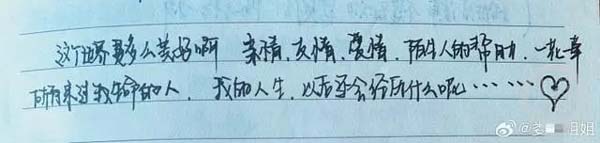 这个世界多么美好啊 亲情、友情、爱情、陌生人的帮助,一
所有来过我生命的人,我的人生,以后还会经历什么呢……
@老 姐姐